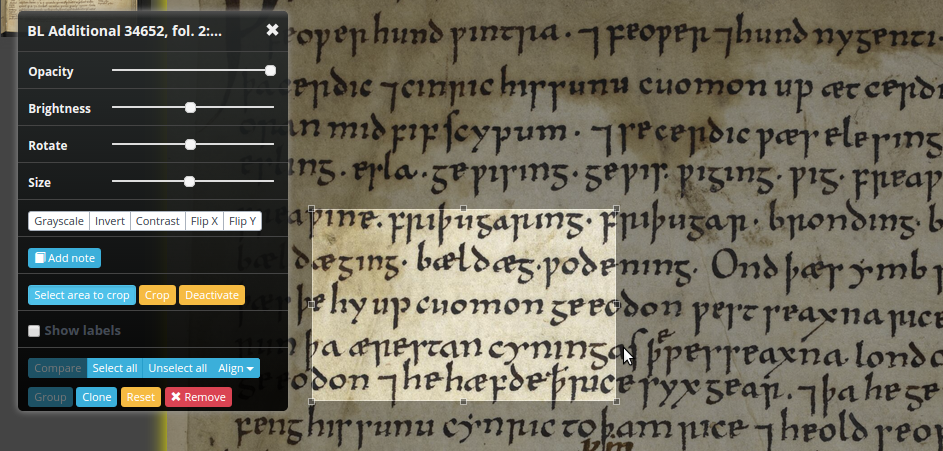 BL Additional 34652, fol. 2:...
Opacity
Brightness
Rotate
Size
Grayscale Invert Contrast Flip X Flip Y
Add note
Select area to crop Crop Deactivate
Show labels
Compare Select all Unselect all Align
Group Clone Reset Remove
feoƿer hund ƿintra · ⁊ feoƿer ⁊ hund nygenti·
⁊ cinric his sunu cuomon up æt cerdi
mid fif scypum · ⁊ se cerdic ƿæs elesing
esla · geƿising · geƿis · ƿiging · ƿig · freaƿ
friþugaring · friþugar · bronding · b
bældæg · ƿodening · Ond þæs ymb
þe hy up cuomon geeodon ƿest seaxna rice
þa ærestan cyningas þe ƿesseaxna · lond
geeodon ⁊ he hæfde þ rice syx gear · ⁊ þa he ge
feng his sunu cynric to þam rice ⁊ heold seo